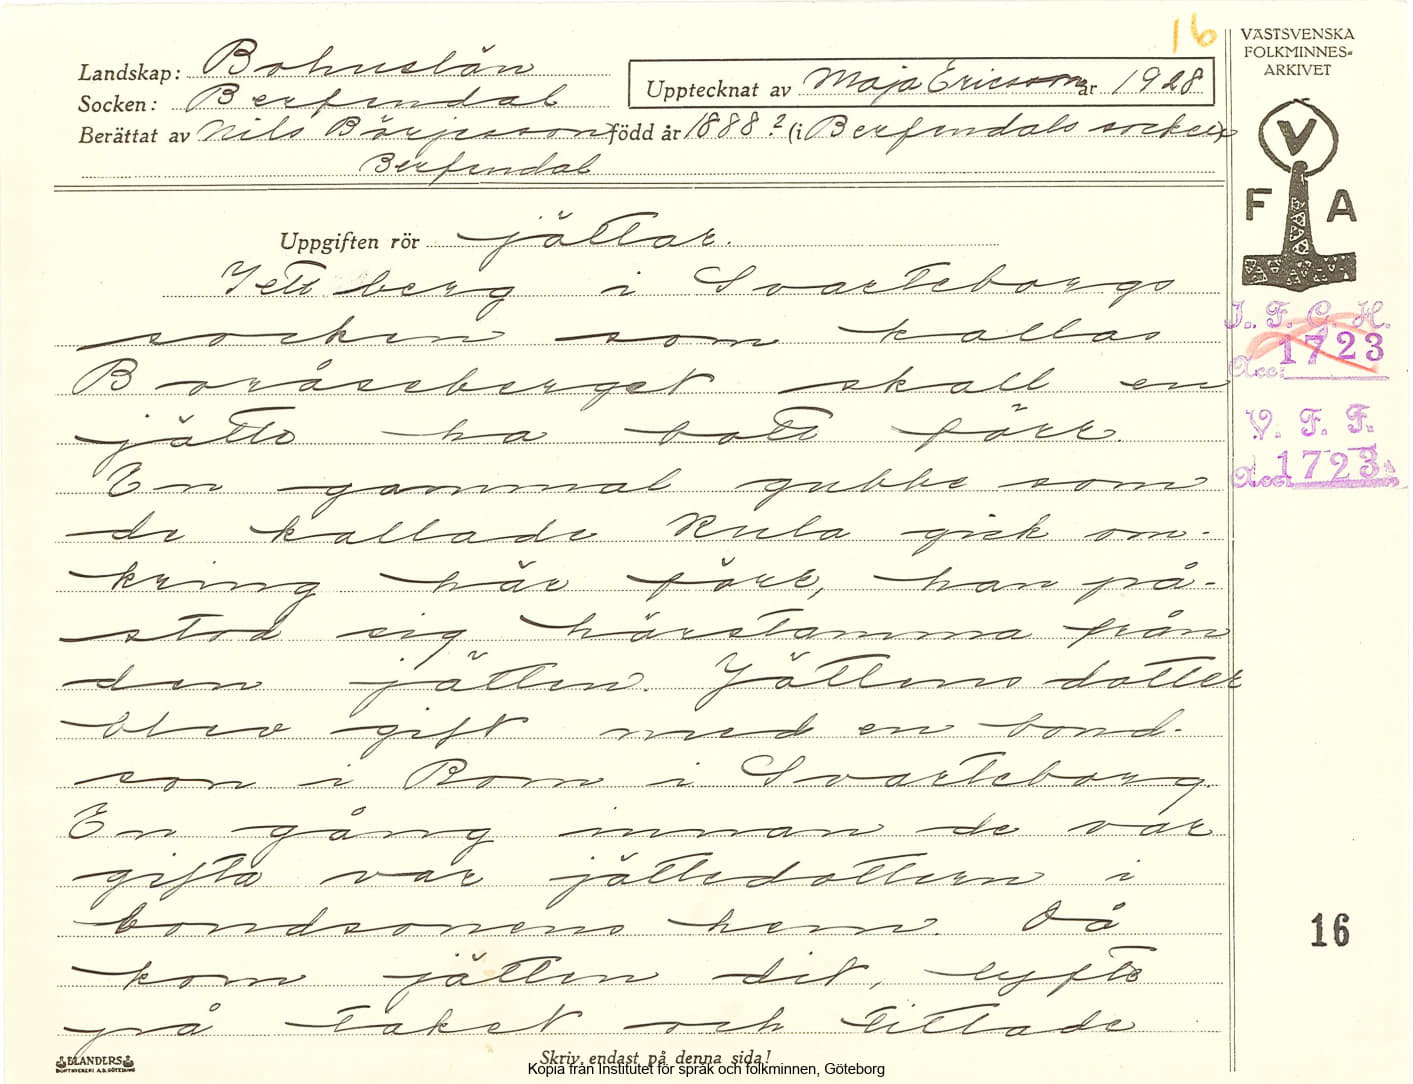 16
VÄSTSVENSKA
FOLKMINNES-
ARKIVET
Landskap: Bohuslän
Socken: Berfendal
Upptecknat av Maja Ericson år 1928
Berättat av Nils Börjesson född år 1888? (i Berfendals socken)
Berfendal
V
F A
Uppgiften rör jättar.
I ett berg i Svarteborgs
socken som kallas
Boråseberget skall en
jätte ha bott förr.
En gammal gubbe som
de kallade Kula gick om-
kring här förr, han på-
stod sig härstamma från
den jätten. Jättens dotter
blev gift med en bond-
son i Rom i Svarteborg.
En gång innan de var
gifta var jättedottern i
bondsonens hem. Då
kom jätten dit, lyfte
på taket och tittade
I. F. G. H.
Acc: 1723
V. F. F.
Acc. 1723
16
ELANDERS
BOKTRYCKERI A.B. GÖTEBORG
Skriv endast på denna sida!
Kopia från Institutet för språk och folkminnen, Göteborg